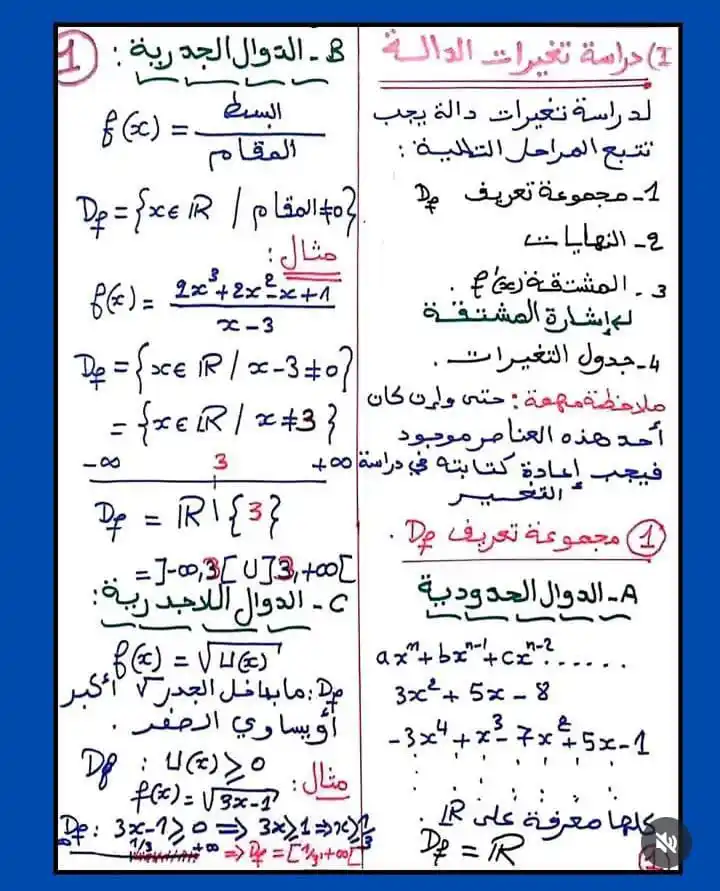 I) دراسة تغيرات الدالة
لدراسة تغيرات دالة يجب
تتبع المراحل التالية :
1- مجموعة تعريف Df
2- النهايات
3- المشتقة f'(x) .
إشارة المشتقة
4- جدول التغيرات .
ملاحظة مهمة : حتى وإن كان
أحد هذه العناصر موجود
فيجب إعادة كتابته في دراسة
التغير
1 مجموعة تعريف Df .
A- الدوال الحدودية
axⁿ + bxⁿ⁻¹ + cxⁿ⁻² ......
3x² + 5x - 8
-3x⁴ + x³ - 7x² + 5x - 1
كلها معرفة على ℝ .
Df = ℝ
1
B- الدوال الجدرية :
f(x) = البسط / المقام
Df = {x ∈ ℝ / المقام ≠ 0}
مثال :
f(x) = (2x³ + 2x² - x + 1) / (x - 3)
Df = {x ∈ ℝ / x - 3 ≠ 0}
= {x ∈ ℝ / x ≠ 3}
-∞ 3 +∞
Df = ℝ \ {3}
= ]-∞, 3[ ∪ ]3, +∞[
C- الدوال اللاجدرية :
f(x) = √U(x)
Df : ما بداخل الجدر √ أكبر
أو يساوي الصفر .
Df : U(x) ≥ 0
مثال :
f(x) = √3x - 1
Df : 3x - 1 ≥ 0 ⇒ 3x ≥ 1 ⇒ x ≥ 1/3
-∞ 1/3 +∞ ⇒ Df = [1/3, +∞[